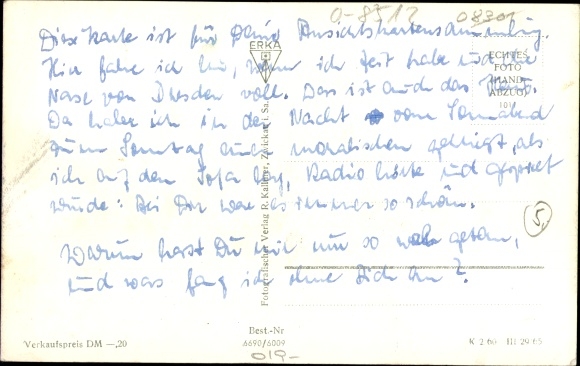 0-8512
08301
Diese Karte ist für Deine Ansichtskartensammlung.
Hier fahre ich hin, wenn ich Zeit habe und die
Nase von Dresden voll. Das ist auch das Haus.
Da habe ich in der Nacht vom Sonnabend
zum Sonntag einen moralischen gekriegt, als
ich auf dem Sofa lag, Radio hörte und gespielt
wurde: Bei Dir war es immer so schön.
Warum hast Du mir nur so weh getan,
und was fang ich ohne Dich an?
5.
ERKA
ECHTES
FOTO
(HAND-
ABZUG)
Fotografischer Verlag R. Kallmer, Zwickau i. Sa.
Verkaufspreis DM —,20
Best.-Nr
6690/6009
019-
K 2 60 III 29 65